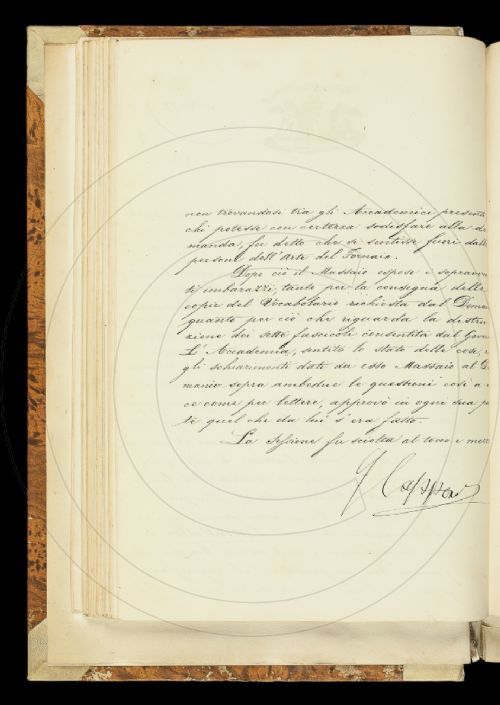 non trovandosi tra gli Accademici presenti
chi potesse con certezza sodisfare alla do
manda, fu detto che si sentisse fuori dalle
persone dell'Arte del Fornaio.
Dopo ciò il Massaio espose i sopravve
ti imbarazzi, tanto per la consegna delle
copie del Vocabolario richiesta dal Deman
quanto per ciò che riguarda la distru
zione dei sette fascicoli consentita dal Gove
L'Accademia, sentito lo stato delle cose, e
gli schiarimenti dati da esso Massaio al De
manio sopra ambedue le questioni così a
ce come per lettere, approvò in ogni sua pa
te quel che da lui s'era fatto.
La Sessione fu sciolta al tocco e mezz
G Capponi